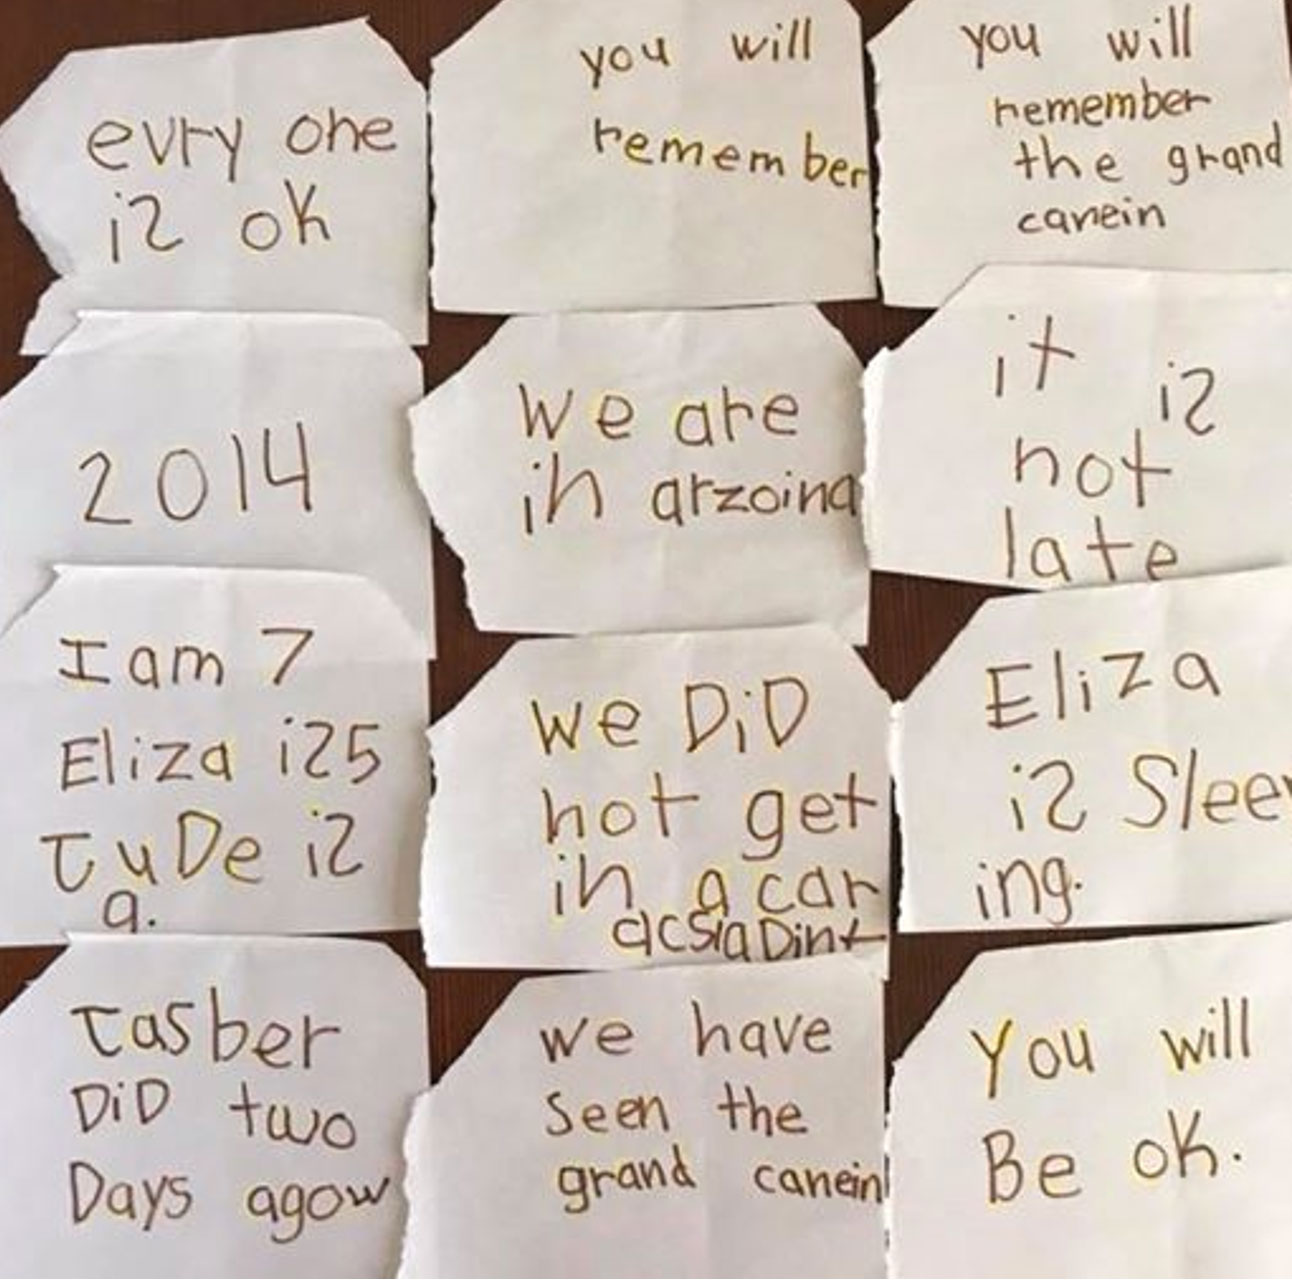 evry one
iz ok
you will
remember
you will
remember
the grand
canein
2014
we are
in arzoina
it iz
not
late
I am 7
Eliza iz 5
TyDe iz
9.
we DiD
not get
in a car
acsiaDint
Eliza
iz Sleep
ing.
Tasber
DiD two
Days agow
we have
seen the
grand canein
You will
Be ok.